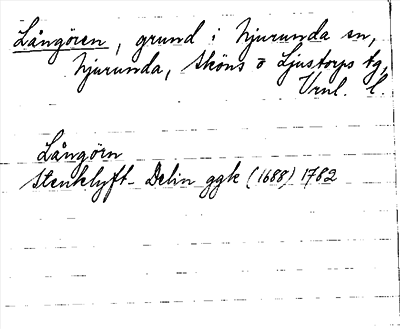 Långören, grund i Njurunda sn,
Njurunda, Sköns o Ljustorps tg,
Vrnl. l.
Långörn
Stenklyft- Delin ggk (1688) 1782